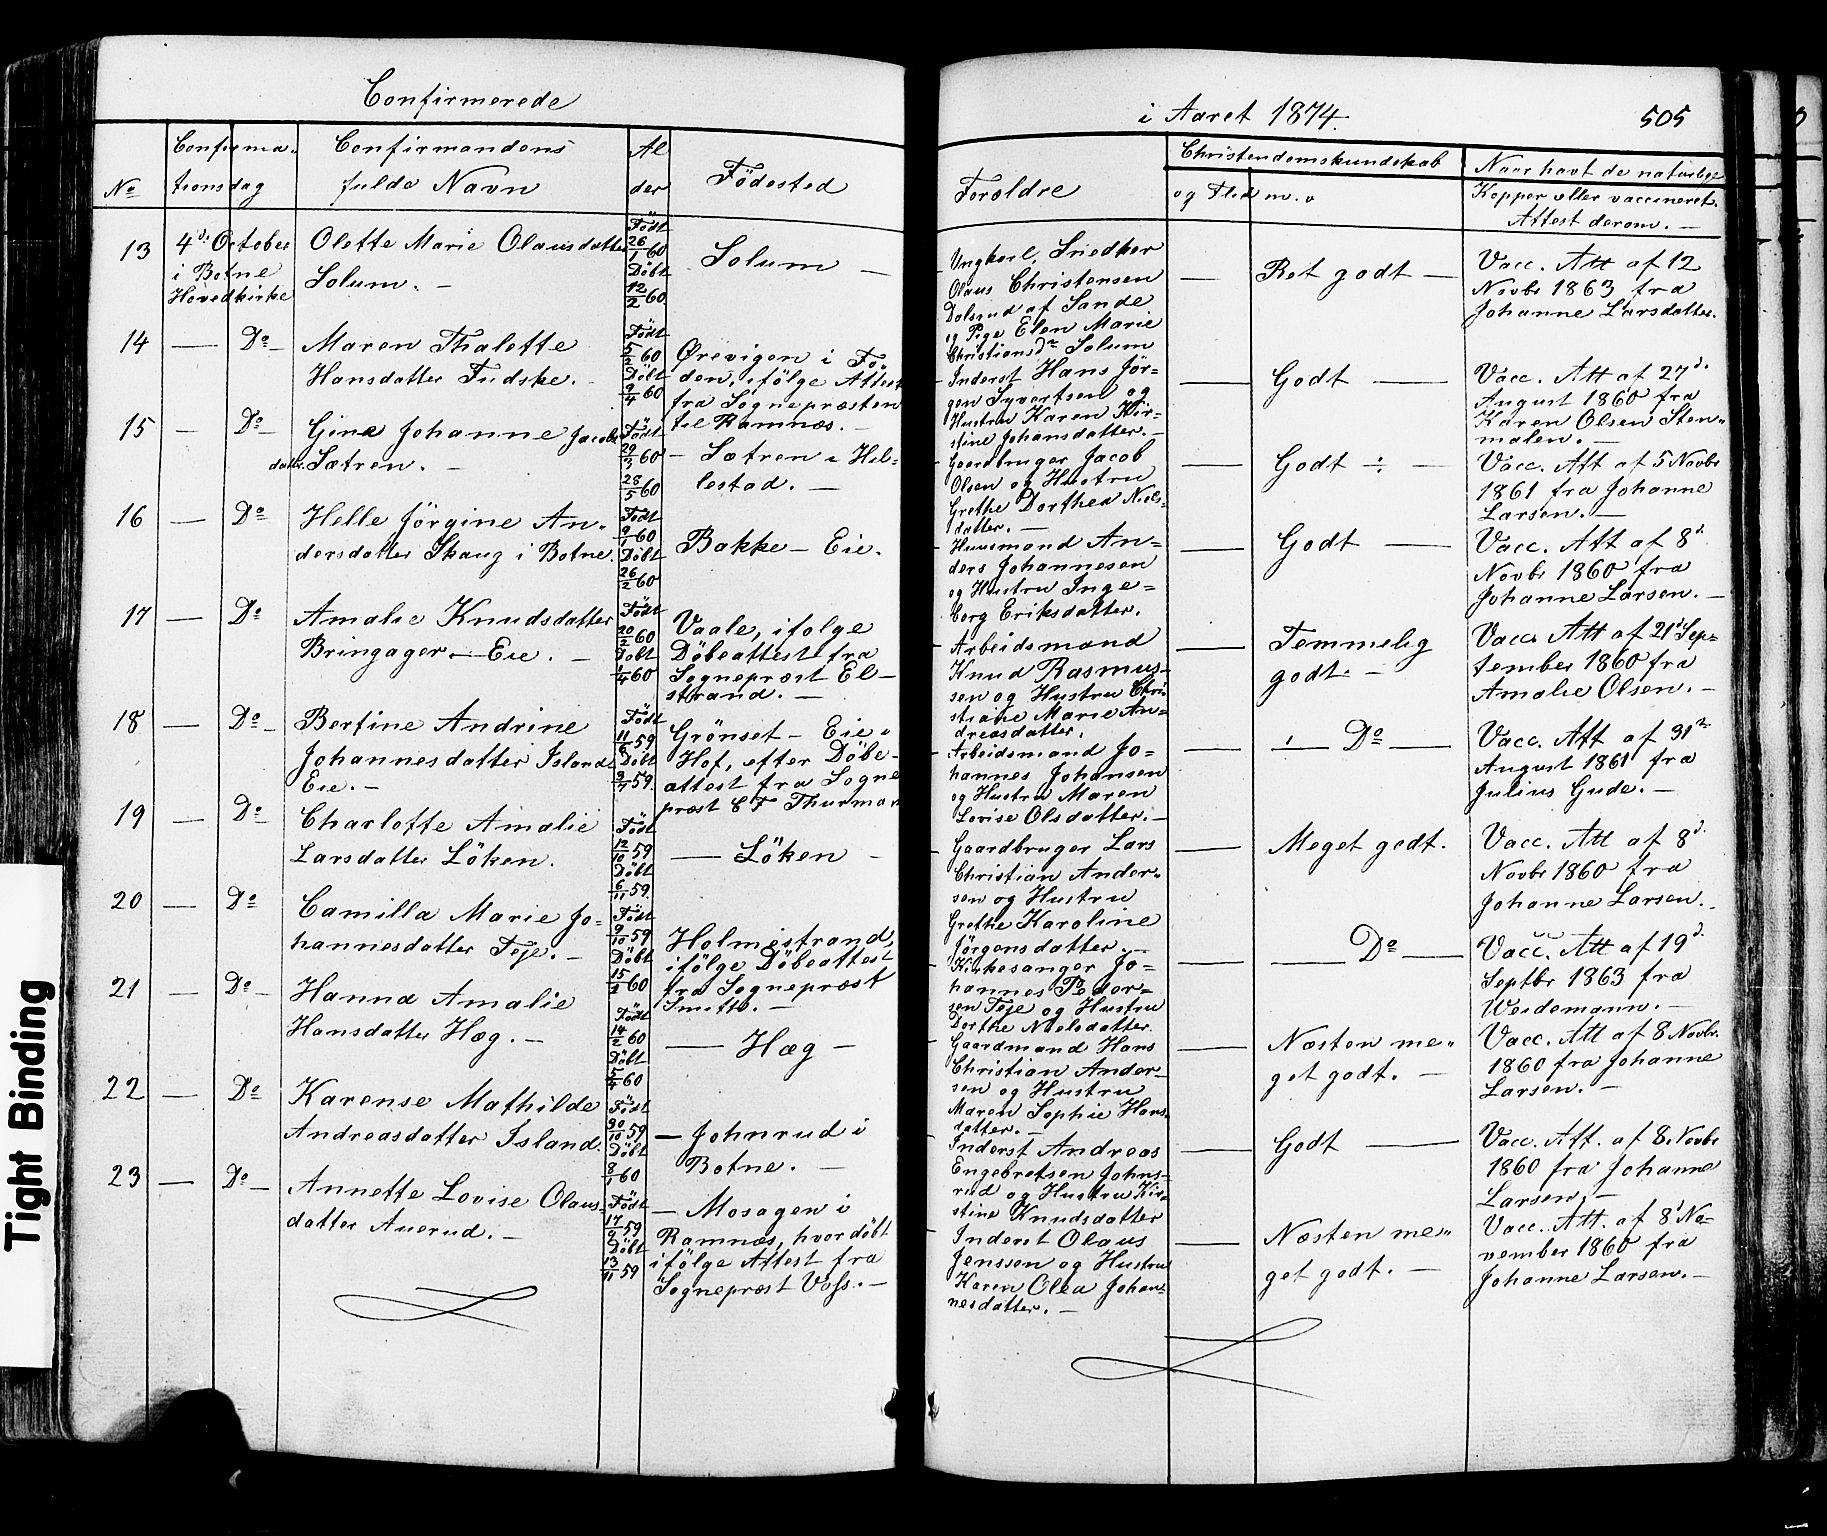 Confirmerede
i Aaret 1874.
505
No
Confirma-
tionsdag
Confirmandens
fulde Navn
Al
der
Födested
Foroldre
Christendomskundskab
og Flid m. v
Naar havt de naturlige
Kopper eller vaccineret.
Attest derom. —
13
4de October
i Botne
Hovedkirke
Olette Marie Olausdatter
Solum. —
Födt
26/1 60
Döbt
12/2 60.
Solum —
Ungkarl, Snedker
Olaus Christensen
Dalsrud af Sande
og Pige Elen Marie
Christiansdr Solum
Ret godt —
Vacc. Att af 12
Novbr 1863 fra
Johanne Larsdatter.
14 — Do —
Maren Thalette
Hansdatter Fudske. —
Födt
5/2 60
Döbt
9/4 60
Ørevigen i Fo-
den, ifölge Attest
fra Sognepræsten
til Ramnæs. —
Inderst Hans Jör-
gen Syvertsen og
Hustru Karen Kir-
stine Johansdatter. —
Godt —
Vacc. Att af 27d.
August 1860 fra
Karen Olsen Sten-
malen. —
15 — Do —
Gina Johanne Jacobs
datter Sætren. —
Födt
29/3 60
28/5 60
— Sætren i Hil-
lestad. —
Gaardbruger Jacob
Olsen og Hustru
Grethe Dorthea Niels-
datter. —
Godt ÷ —
Vacc. Att af 5 Novbr
1861 fra Johanne
Larsen. —
16 — Do —
Helle Jörgine An-
dersdatter Skaug i Botne.
Födt
9/1 60
Döbt
26/2 60
Bakke — Eie.
Huusmand An-
ders Johannesen
og Hustru Inge-
borg Eriksdatter.
Godt —
Vacc. Att af 8d
Novbr 1860 fra
Johanne Larsen. —
17 — Do
Amalie Knudsdatter
Bringager — Eie. —
Födt
20/2 60
Döbt
1/4 60
Vaale, ifolge
Döbeattest fra
Sognepræst El-
strand. —
Arbeidsmand
Knud Rasmus-
sen og Hustru Chri-
stiane Marie An-
dreasdatter.
Temmelig
godt. —
Vacc Att af 21 Sep-
tember 1860 fra
Amalie Olsen. —
18 — Do —
Bertine Andrine
Johannesdatter Island
Eie. —
Födt
11/6 59
Döbt
3/7 59.
Grönset — Eie i
Hof, efter Döbe-
attest fra Sogne
præst C F Thurman
Arbeidsmand Jo-
hannes Johansen
og Hustru Maren
Lovise Olsdatter. —
— Do —
Vacc. Att af 31te
August 1861 fra
Julius Gude. —
19 — Do —
Charlotte Amalie
Larsdatter Löken.
Födt
12/10 59
Döbt
6/11 59.
— Löken —
Gaardbruger Lars
Christian Ander-
sen og Hustru
Grethe Karoline
Jörgensdatter. —
Meget godt.
Vacc. Att af 8d.
Novbr 1860 fra
Johanne Larsen.
20 — Do
Camilla Marie Jo-
hannesdatter Teje. —
Födt
9/10 59
Döbt
15/2 60
Holmestrand,
ifölge Döbeattest
fra Sognepræst
Smitth. —
Kirkesanger Jo-
hannes Peder-
sen Teje og Hustru
Dorthe Nielsdatter.
— Do —
Vacc. Att af 19d.
Septbr 1863 fra
Weidemann. —
21 — Do —
Hanna Amalie
Hansdatter Hæg. —
Födt
14/2 60
Döbt
5/4 60
— Hæg —
Gaardmand Hans
Christian Ander-
sen og Hustru
Maren Sophie Hans
datter. —
Næsten me-
get godt. —
Vacc. Att af 8 Novbr.
1860 fra Johanne
Larsen. —
22 — Do
Karense Mathilde
Andreasdatter Island.
Födt
30/10 59
Döbt
8/1 60
— Johnrud i
Botne. —
Inderst Andreas
Engebretsen Johns-
rud og Hustru Kir-
stine Knudsdatter
Godt —
Vacc. Att. af 8. Novbr
1860 fra Johanne
Larsen. —
23 — Do —
Annette Lovise Olaus-
datter Auerud. —
Födt
17/9 59
Döbt
13/11 59
— Mosagen i
Ramnæs, hvor döbt
ifölge Attest fra
Sognepræst Voss. —
Inderst Olaus
Jenssen og Hustru
Karen Olea Johan-
nesdatter. —
Næsten me-
get godt. —
Vacc. Att. af 8d No-
vember 1860 fra
Johanne Larsen. —
Tight Binding